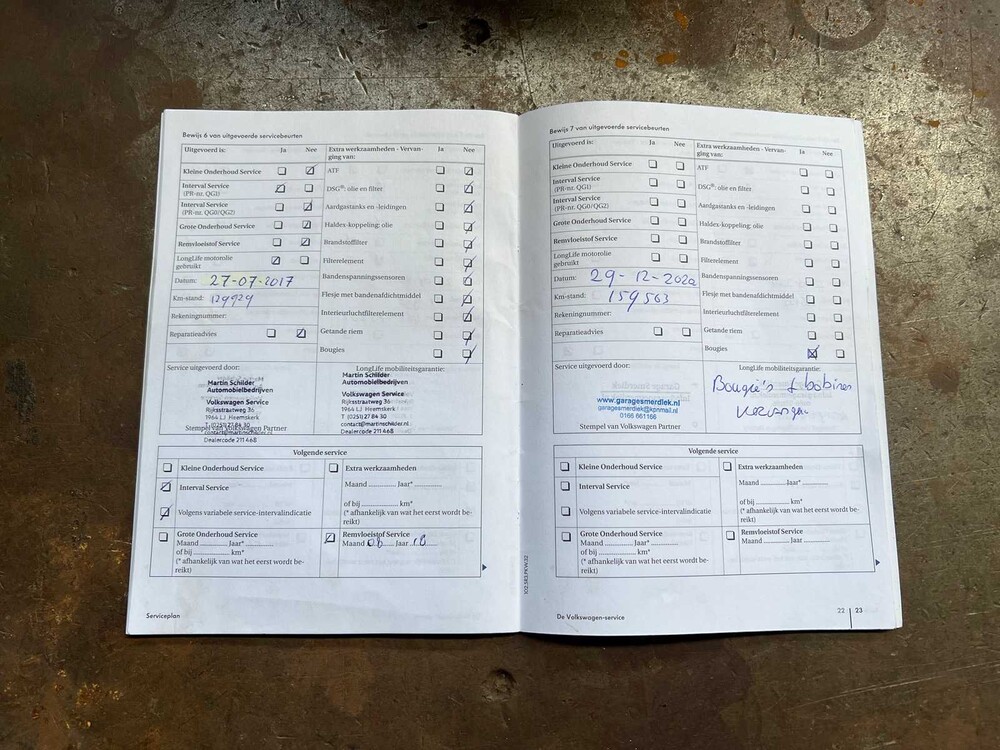 Bewijs 6 van uitgevoerde servicebeurten
Uitgevoerd is: Ja Nee
Kleine Onderhoud Service
Interval Service
(PR-nr. QG1)
Interval Service
(PR-nr. QG0/QG2)
Grote Onderhoud Service
Remvloeistof Service
LongLife motorolie
gebruikt
Datum: 27-07-2017
Km-stand: 129929
Rekeningnummer:
Reparatieadvies
Extra werkzaamheden - Vervan- Ja Nee
ging van:
ATF
DSG®: olie en filter
Aardgastanks en -leidingen
Haldex-koppeling: olie
Brandstoffilter
Filterelement
Bandenspanningssensoren
Flesje met bandenafdichtmiddel
Interieurluchtfilterelement
Getande riem
Bougies
Service uitgevoerd door:
Martin Schilder
Automobielbedrijven
Volkswagen Service
Rijksstraatweg 36
1964 LJ Heemskerk
T (0251) 27 84 30
contact@martinschilder.nl
Dealercode 211 468
Stempel van Volkswagen Partner
LongLife mobiliteitsgarantie:
Martin Schilder
Automobielbedrijven
Volkswagen Service
Rijksstraatweg 36
1964 LJ Heemskerk
T (0251) 27 84 30
contact@martinschilder.nl
Dealercode 211 468
Volgende service
Kleine Onderhoud Service
Interval Service
Volgens variabele service-intervalindicatie
Grote Onderhoud Service
Maand ............ Jaar* ............
of bij ............ km*
(* afhankelijk van wat het eerst wordt be-
reikt)
Extra werkzaamheden
Maand ............ Jaar* ............
of bij ............ km*
(* afhankelijk van wat het eerst wordt be-
reikt)
Remvloeistof Service
Maand 08 Jaar 18
Serviceplan
102.5R3.PKW.32
Bewijs 7 van uitgevoerde servicebeurten
Uitgevoerd is: Ja Nee
Kleine Onderhoud Service
Interval Service
(PR-nr. QG1)
Interval Service
(PR-nr. QG0/QG2)
Grote Onderhoud Service
Remvloeistof Service
LongLife motorolie
gebruikt
Datum: 29-12-2020
Km-stand: 159563
Rekeningnummer:
Reparatieadvies
Extra werkzaamheden - Vervan- Ja Nee
ging van:
ATF
DSG®: olie en filter
Aardgastanks en -leidingen
Haldex-koppeling: olie
Brandstoffilter
Filterelement
Bandenspanningssensoren
Flesje met bandenafdichtmiddel
Interieurluchtfilterelement
Getande riem
Bougies
Service uitgevoerd door:
www.garagesmerdiek.nl
garagesmerdiek@kpnmail.nl
0166 661166
Stempel van Volkswagen Partner
LongLife mobiliteitsgarantie:
Bougie's + bobines
vervangen
Volgende service
Kleine Onderhoud Service
Interval Service
Volgens variabele service-intervalindicatie
Grote Onderhoud Service
Maand ............ Jaar* ............
of bij ............ km*
(* afhankelijk van wat het eerst wordt be-
reikt)
Extra werkzaamheden
Maand ............ Jaar* ............
of bij ............ km*
(* afhankelijk van wat het eerst wordt be-
reikt)
Remvloeistof Service
Maand ............ Jaar ............
De Volkswagen-service
22 | 23